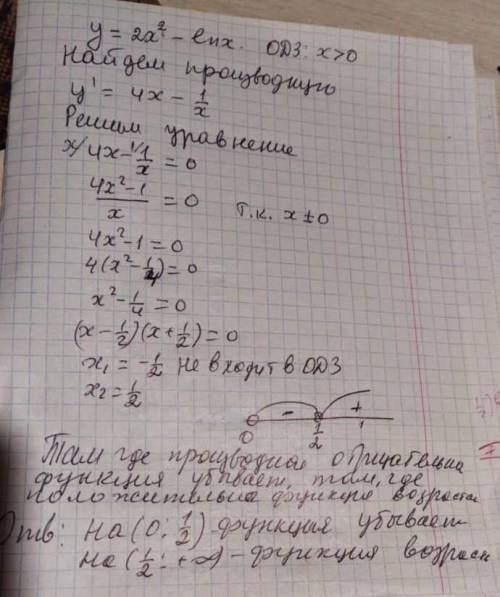 y = 2x² - lnx. ОДЗ: x>0
Найдем производную
y' = 4x - 1/x
Решим уравнение
x/ 4x - 1/x = 0
(4x² - 1)/x = 0 т.к. x ≠ 0
4x² - 1 = 0
4(x² - 1/4) = 0
x² - 1/4 = 0
(x - 1/2)(x + 1/2) = 0
x₁ = -1/2 не входит в ОДЗ
x₂ = 1/2
- +
0 1/2
Там где производная отрицательна
функция убывает, там, где
положительна функция возраста
Отв: на (0; 1/2) функция убывает
на (1/2; +∞) - функция возрасн